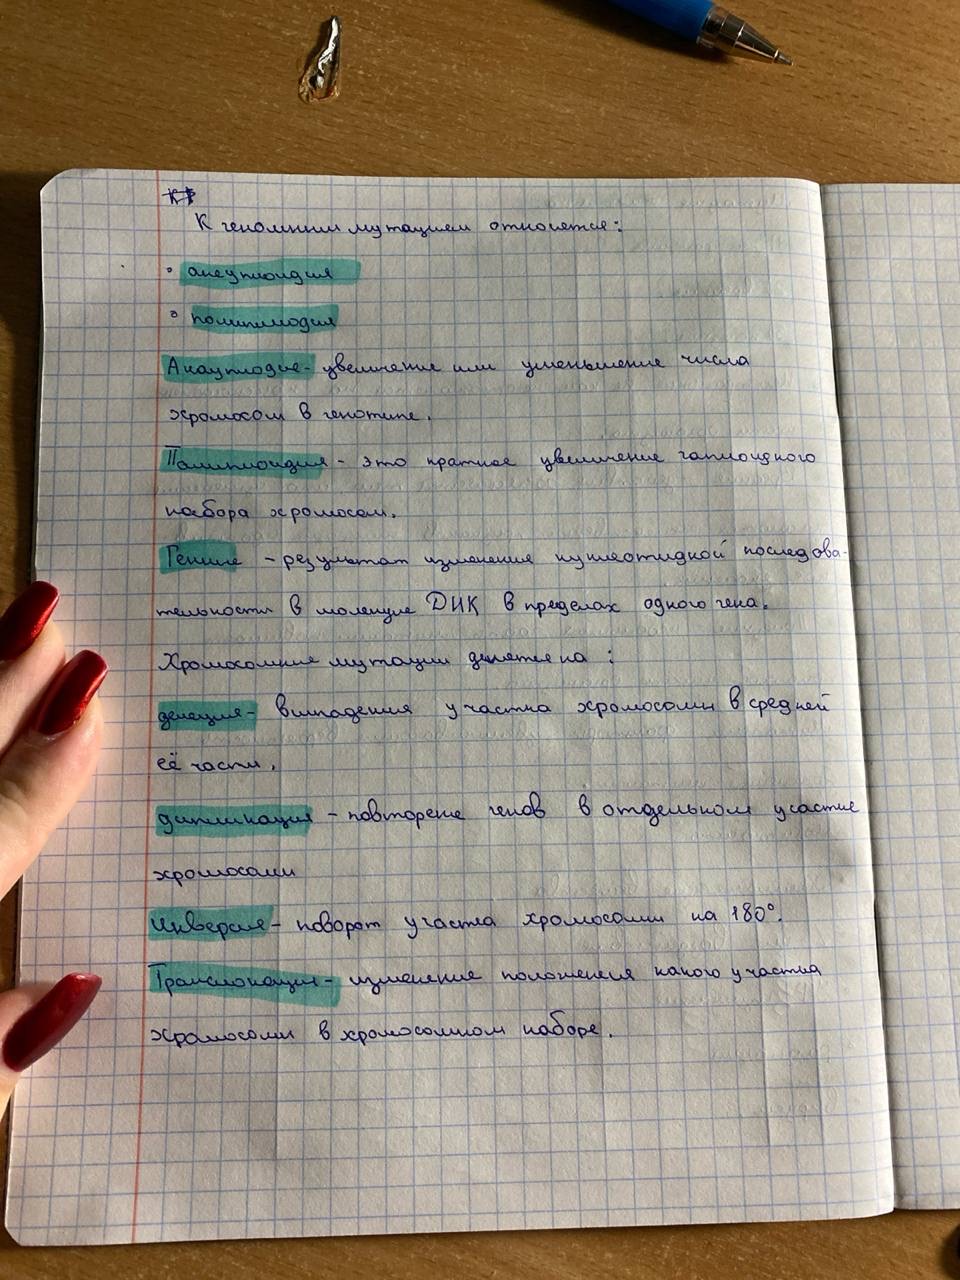 К геномным мутациям относятся:
• анеуплоидия
• полиплоидия
Анеуплодие - увеличение или уменьшение числа
хромосом в генотипе.
Полиплоидия - это кратное увеличение гаплоидного
набора хромосом.
Генные - результат изменения нуклеотидной последова-
тельности в молекуле ДНК в пределах одного гена.
Хромосомные мутации делятся на :
делеция - выпадения участка хромосомы в средней
её части.
дупликация - повторение генов в отдельном участке
хромосомы
Инверсия - поворот участка хромосомы на 180°.
Транслокация - изменение положения какого участка
хромосомы в хромосомном наборе.